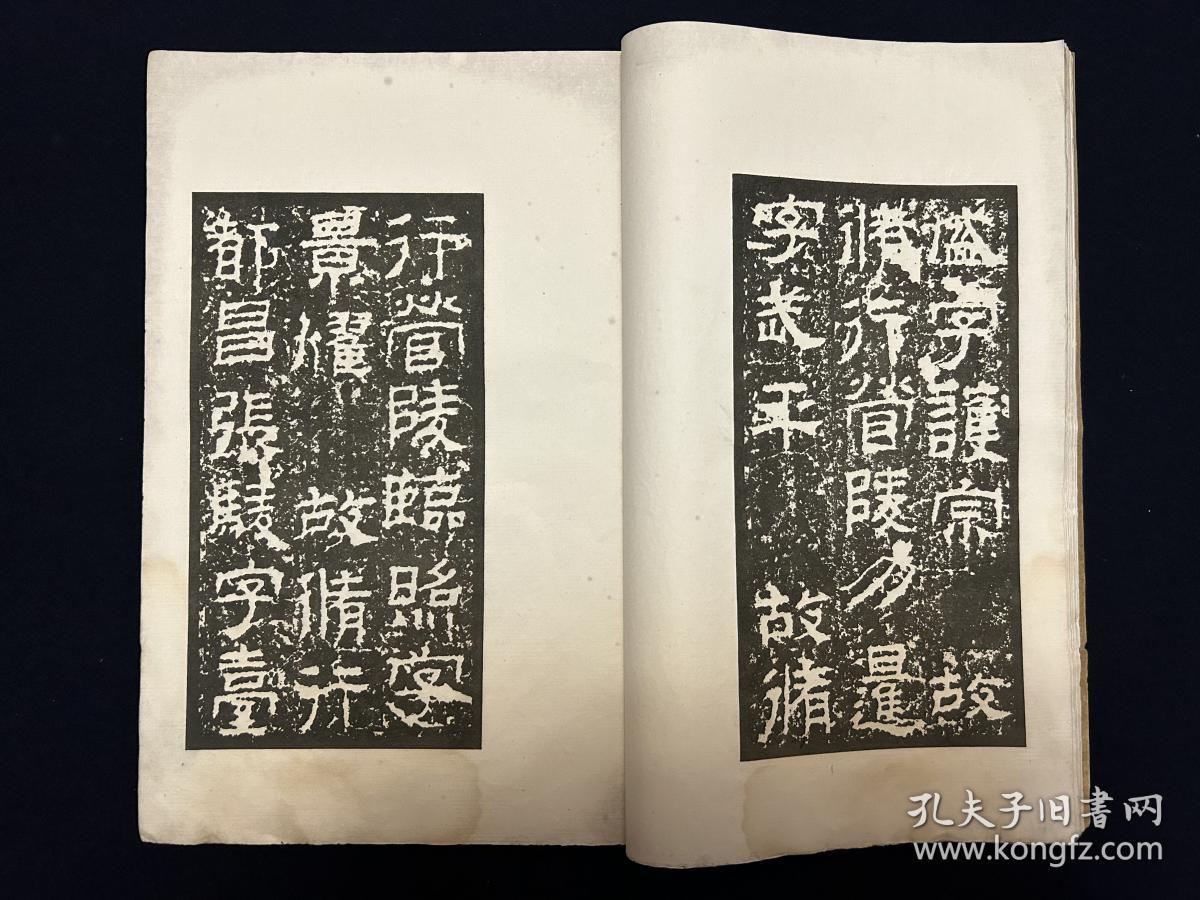 字護宗 故
脩行營陵力暹
字武平 故脩
行營陵臨照字
景燿 故脩行
都昌張駼字臺
孔夫子旧書网
www.kongfz.com